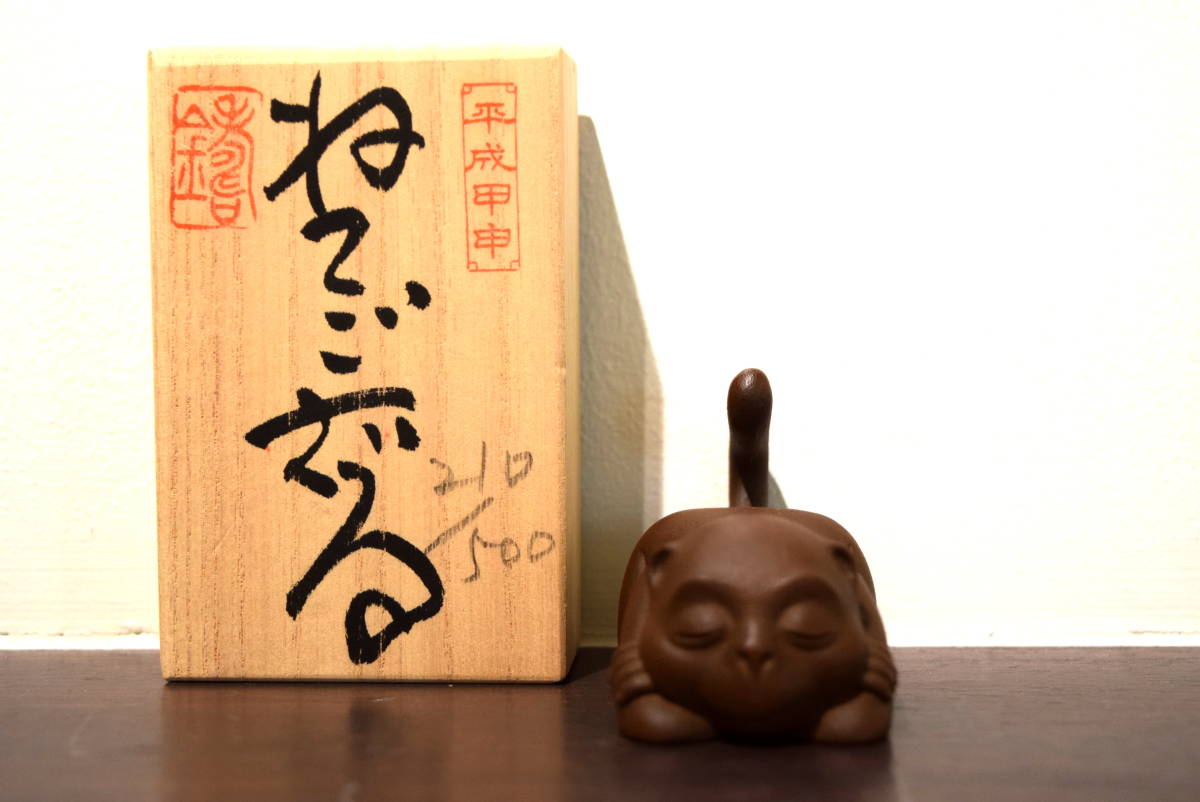 平成甲申
ねこござる
210/500